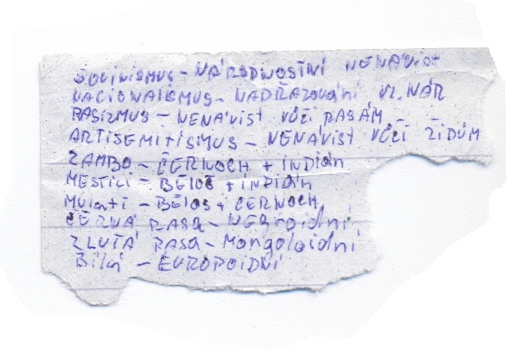 ŠOVINISMUS - NÁRODNOSTNÍ NENÁVIST
NACIONALISMUS - NADŘAZOVÁNÍ VL. NÁR
RASIZMUS - NENÁVIST VŮČI RASÁM
ARTISEMITISMUS - NENÁVIST VŮČÍ ŽIDŮM
ZAMBO - ČERNOCH + INDIÁN
MESTICI - BĚLOŠ + INDIÁN
MULATI - BĚLOŠ + ČERNOCH
ČERNÁ RASA - NEGROIDNÍ
ŽLUTÁ RASA - MONGOLOIDNÍ
BILÁ - EUROPOIDNÍ